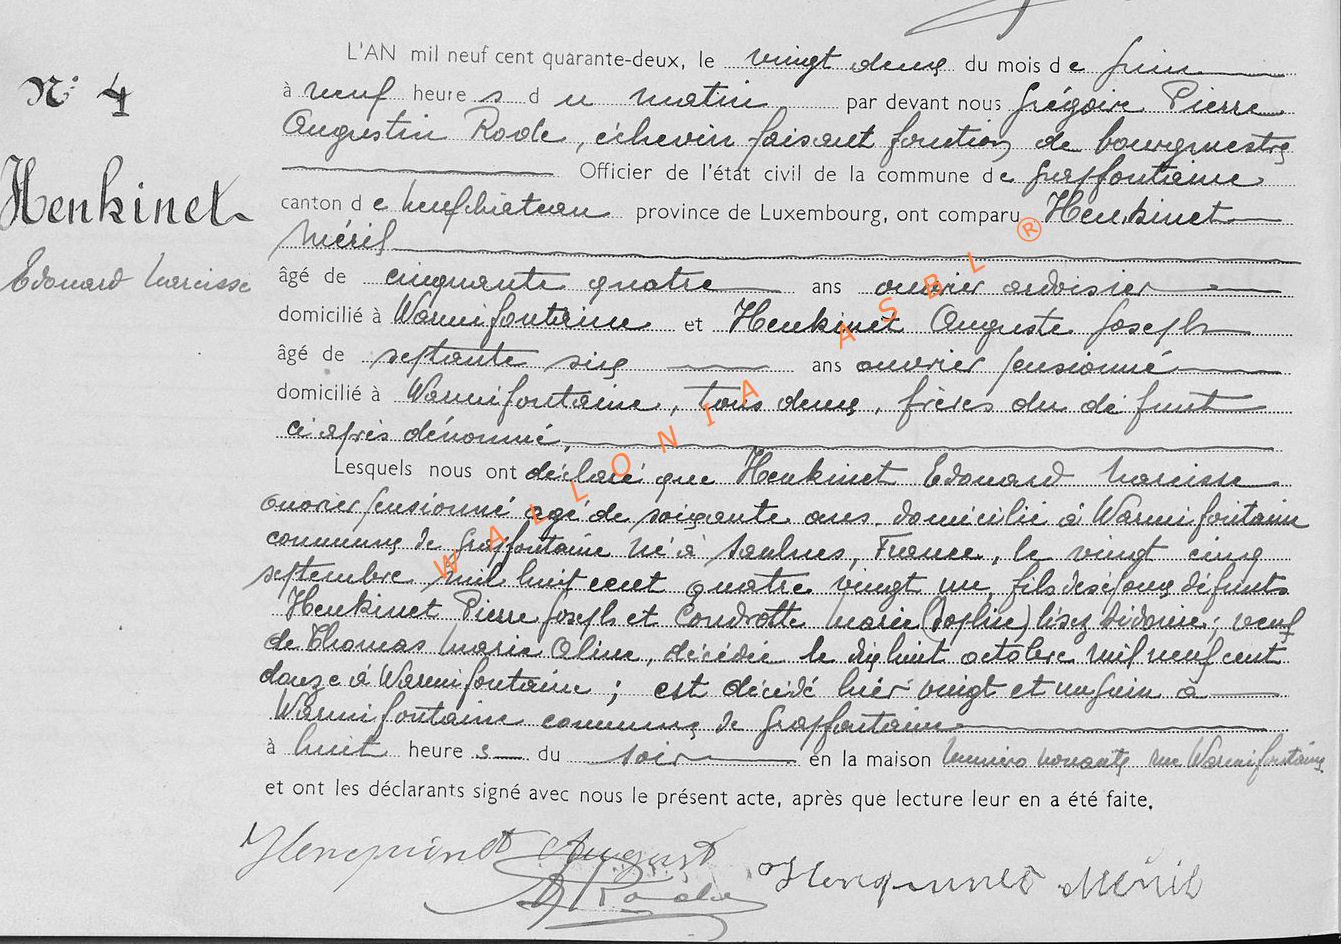 L'AN mil neuf cent quarante-deux, le vingt deux du mois de juin
N° 4
à neuf heures du matin par devant nous Grégoire Pierre
Augustin Rode, échevin faisant fonction de bourgmestre
Officier de l'état civil de la commune de Grapfontaine
Henkinet
canton de Neufchâteau province de Luxembourg, ont comparu Henkinet
Méril
Edouard Narcisse
âgé de cinquante quatre ans ouvrier ardoisier
domicilié à Warmifontaine et Henkinet Auguste Joseph
âgé de septante six ans ouvrier pensionné
domicilié à Warmifontaine, tous deux, frères du défunt
ci après dénommé,
Lesquels nous ont déclaré que Henkinet Edouard Narcisse
ouvrier pensionné agé de soixante ans domicilié à Warmifontaine
commune de Grapfontaine né à Saulnes, France, le vingt cinq
septembre mil huit cent quatre vingt un, fils des époux défunts
Henkinet Pierre Joseph et Condrotte Marie (Sophie) lisez Sidonie; veuf
de Thomas Marie Oline, décédée le dix huit octobre mil neuf cent
douze à Warmifontaine ; est décédé hier vingt et un juin à
Warmifontaine commune de Grapfontaine
à huit heures du soir en la maison numéro nonante rue Warmifontaine
et ont les déclarants signé avec nous le présent acte, après que lecture leur en a été faite.
Henquinet August
Henquinet Méril
WALLONIA ASBL ®